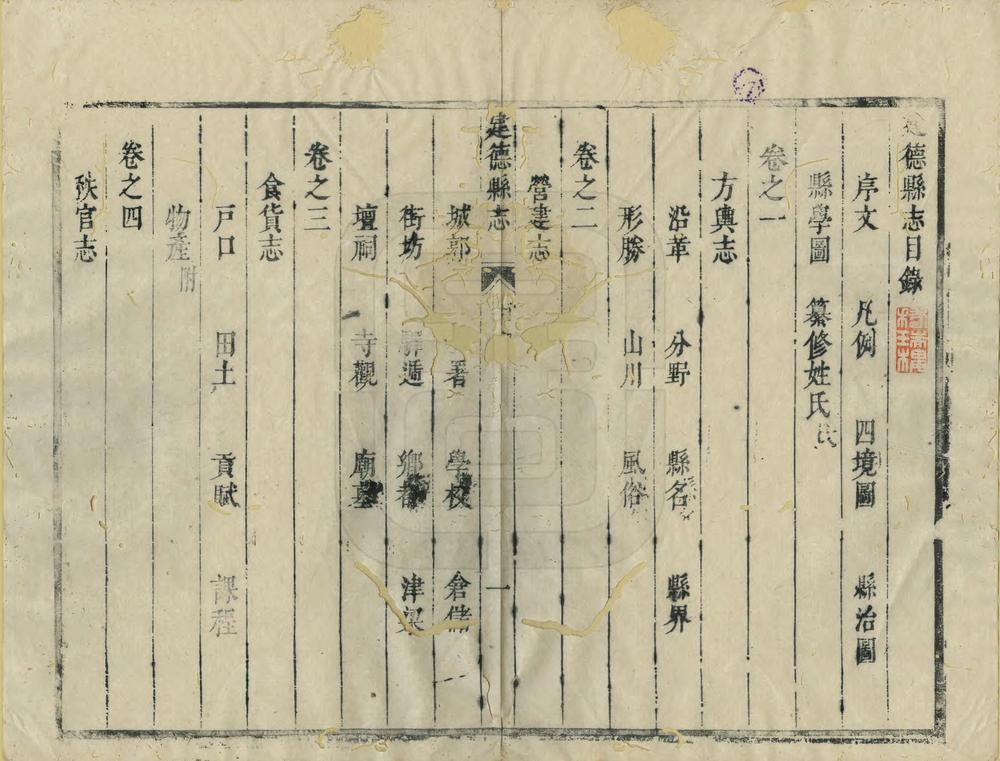 建德縣志目錄
序文 凡例 四境圖 縣治圖
縣學圖 纂修姓氏
卷之一
方輿志
沿革 分野 縣名 縣界
形勝 山川 風俗
卷之二
營建志
建德縣志 目 一
城郭 署 學校 倉儲
街坊 郵遞 鄉都 津梁
壇祠 寺觀 廟墓
卷之三
食貨志
戸口 田土 貢賦 課程
物產附
卷之四
秩官志